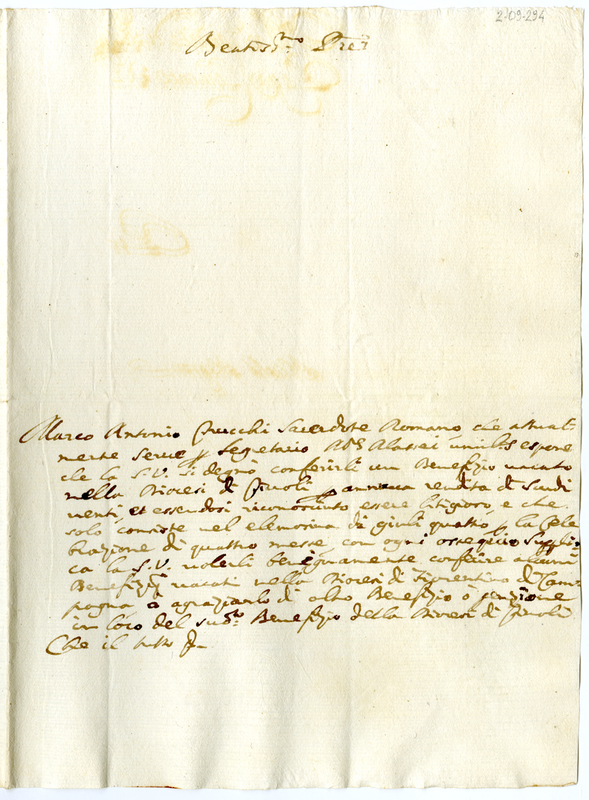 2-09-294
Beatis.mo Pre
Marco Antonio Sacerdote Romano che attual=
mente serve p Segretario umil.e espone
che la S.V. si degnò conferirli un Benefizio vacato
nella Diocesi di Tivoli p annua rendita di Scudi
venti, et essendosi riconosciuto essere litigioso, e che
solo consiste nel elemosina di giuli quattro p la cele
brazione di quattro messe con ogni ossequio suppli=
ca la S.V. volerli benignamente conferire alcuni
Benefizij vacati nella Diocesi di Fiorentino di Cam=
pagna o agraziarlo di altro Benefizio o penzione
in loco del sud.o Benefizio della Diocesi di Tivoli
Che il tutto